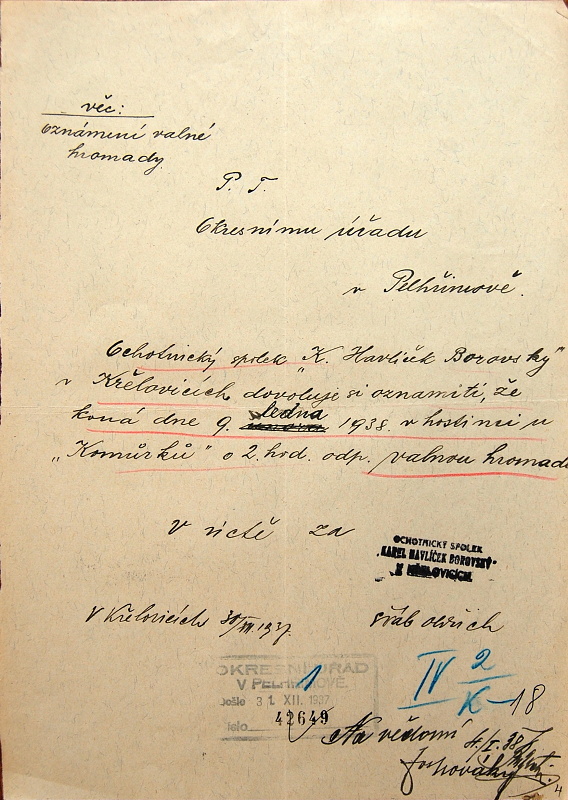 věc:
oznámení valné
hromady.
P. T.
Okresnímu úřadu
v Pelhřimově.
Ochotnický spolek "K. Havlíček Borovský"
v Křelovicích dovoluje si oznámiti, že
koná dne 9. ledna 1938. v hostinci u
„Komůrků" o 2 hod. odp. valnou hromadu
V úctě za
OCHOTNICKÝ SPOLEK
KAREL HAVLÍČEK BOROVSKÝ
V KŘELOVICÍCH
V Křelovicích 30/XII.1937.
Šváb Oldřich
OKRESNÍ ÚŘAD
V PELHŘIMOVĚ.
Došlo 31. XII. 1937
Číslo 42649
1
IV 2/K-18
Na vědomí 4./I.38
4